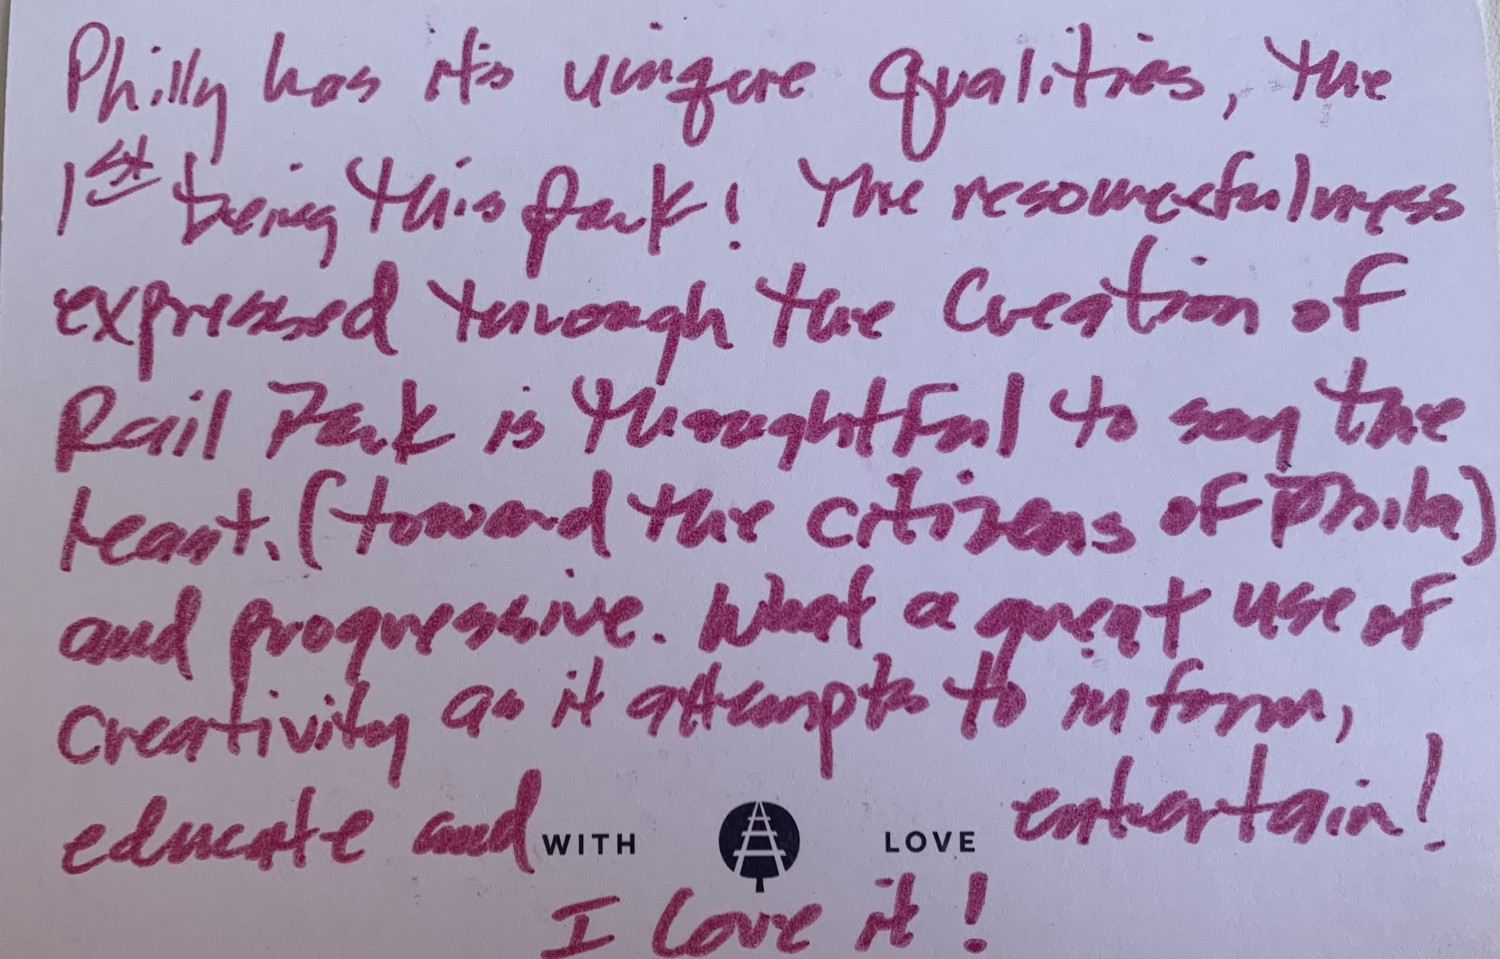 Philly has it's uinqure qualities, the
1st being this park! The resourcefulness
expressed through the Creation of
Rail Park is thoughtful to say the
least. (toward the citizens of Phila)
and progressive. What a great use of
creativity as it attempts to inform,
educate and WITH LOVE entertain!
I love it!